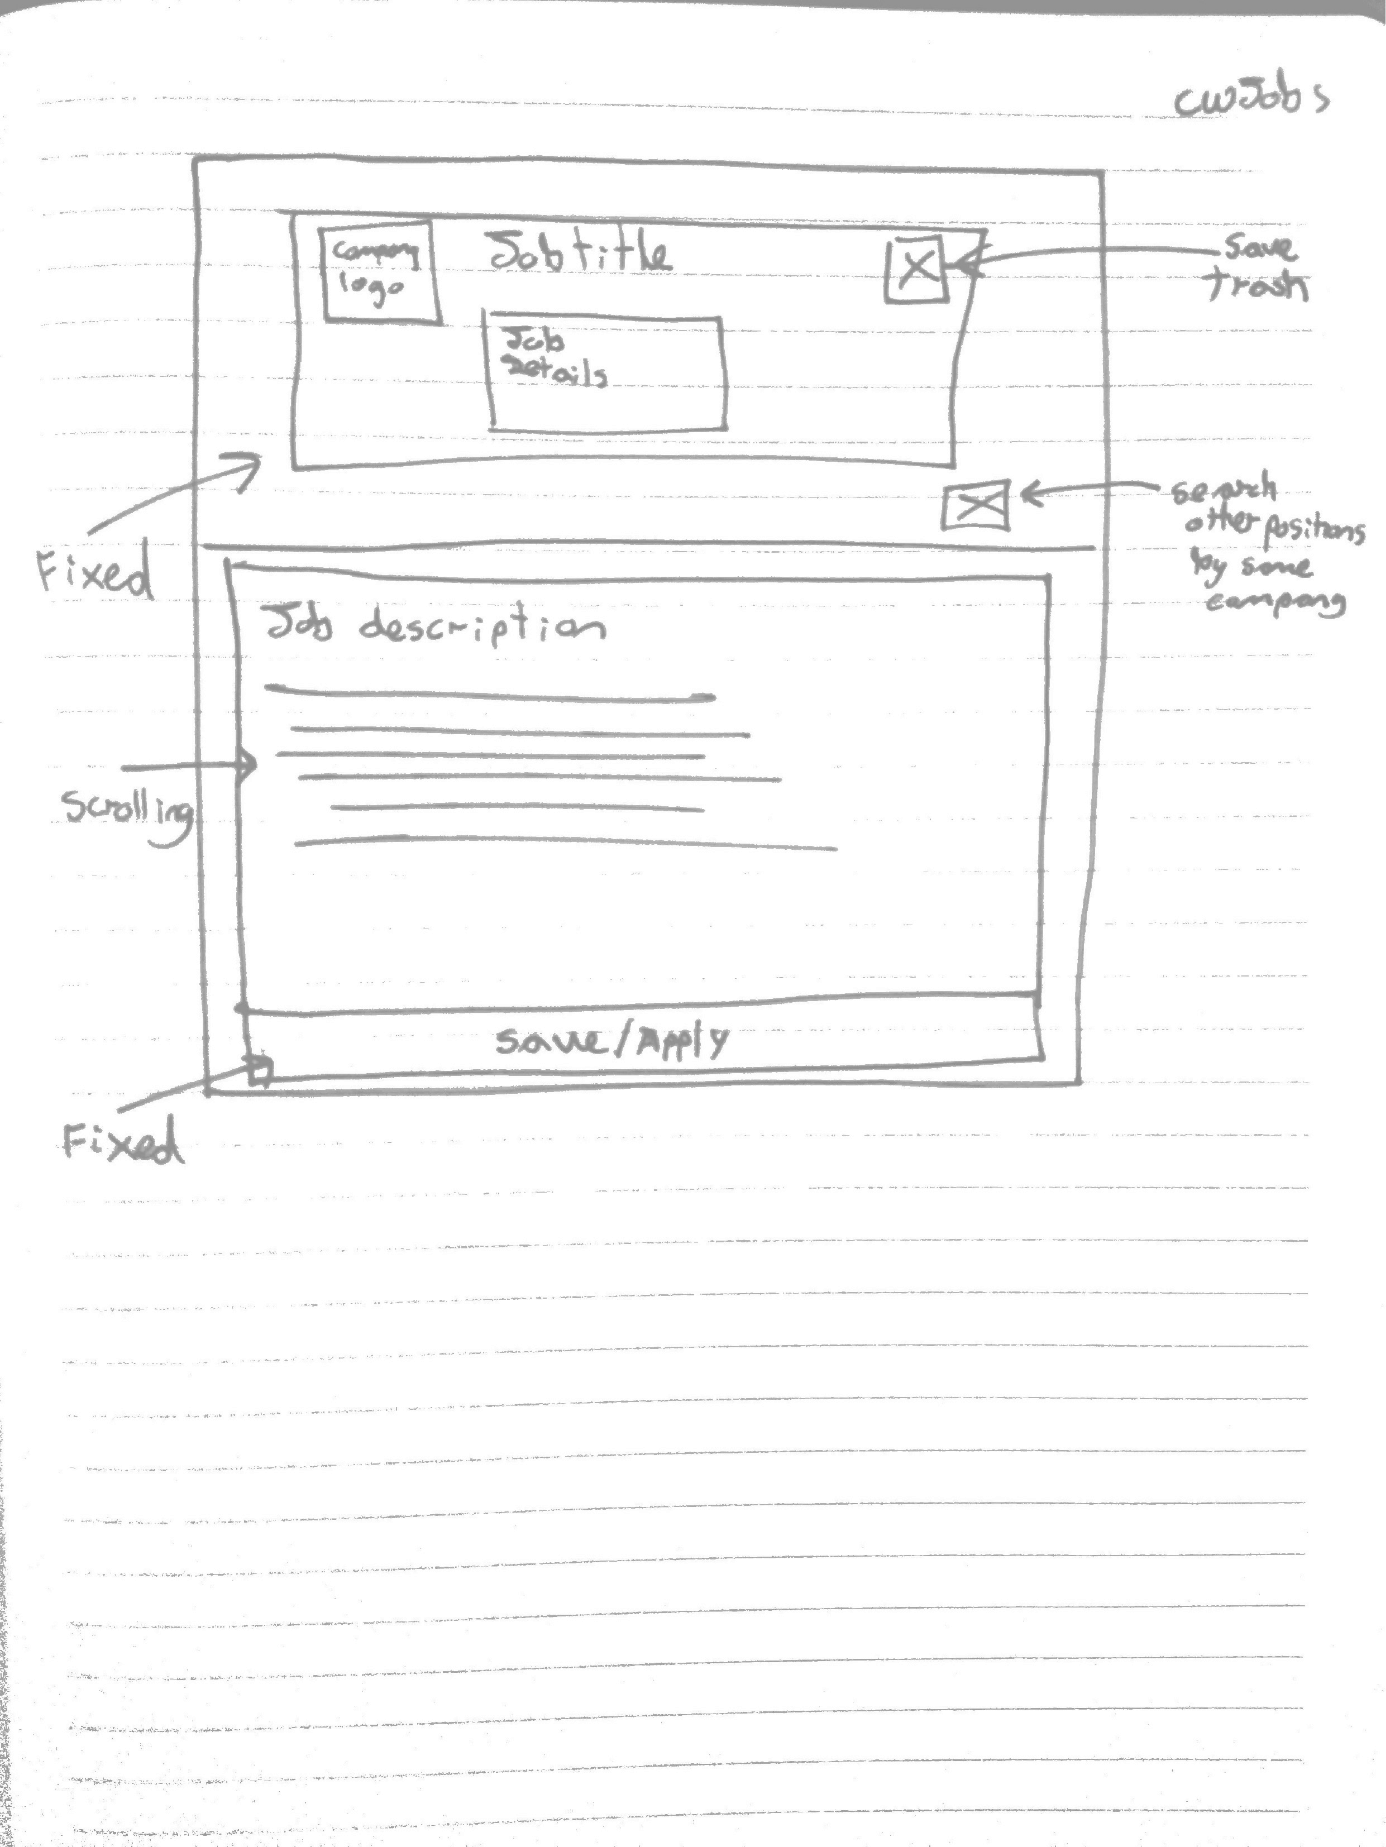 cwJobs
Company
logo
Job title
save
trash
Job
Details
search
other positions
by same
company
Fixed
Job description
Scrolling
save/Apply
Fixed